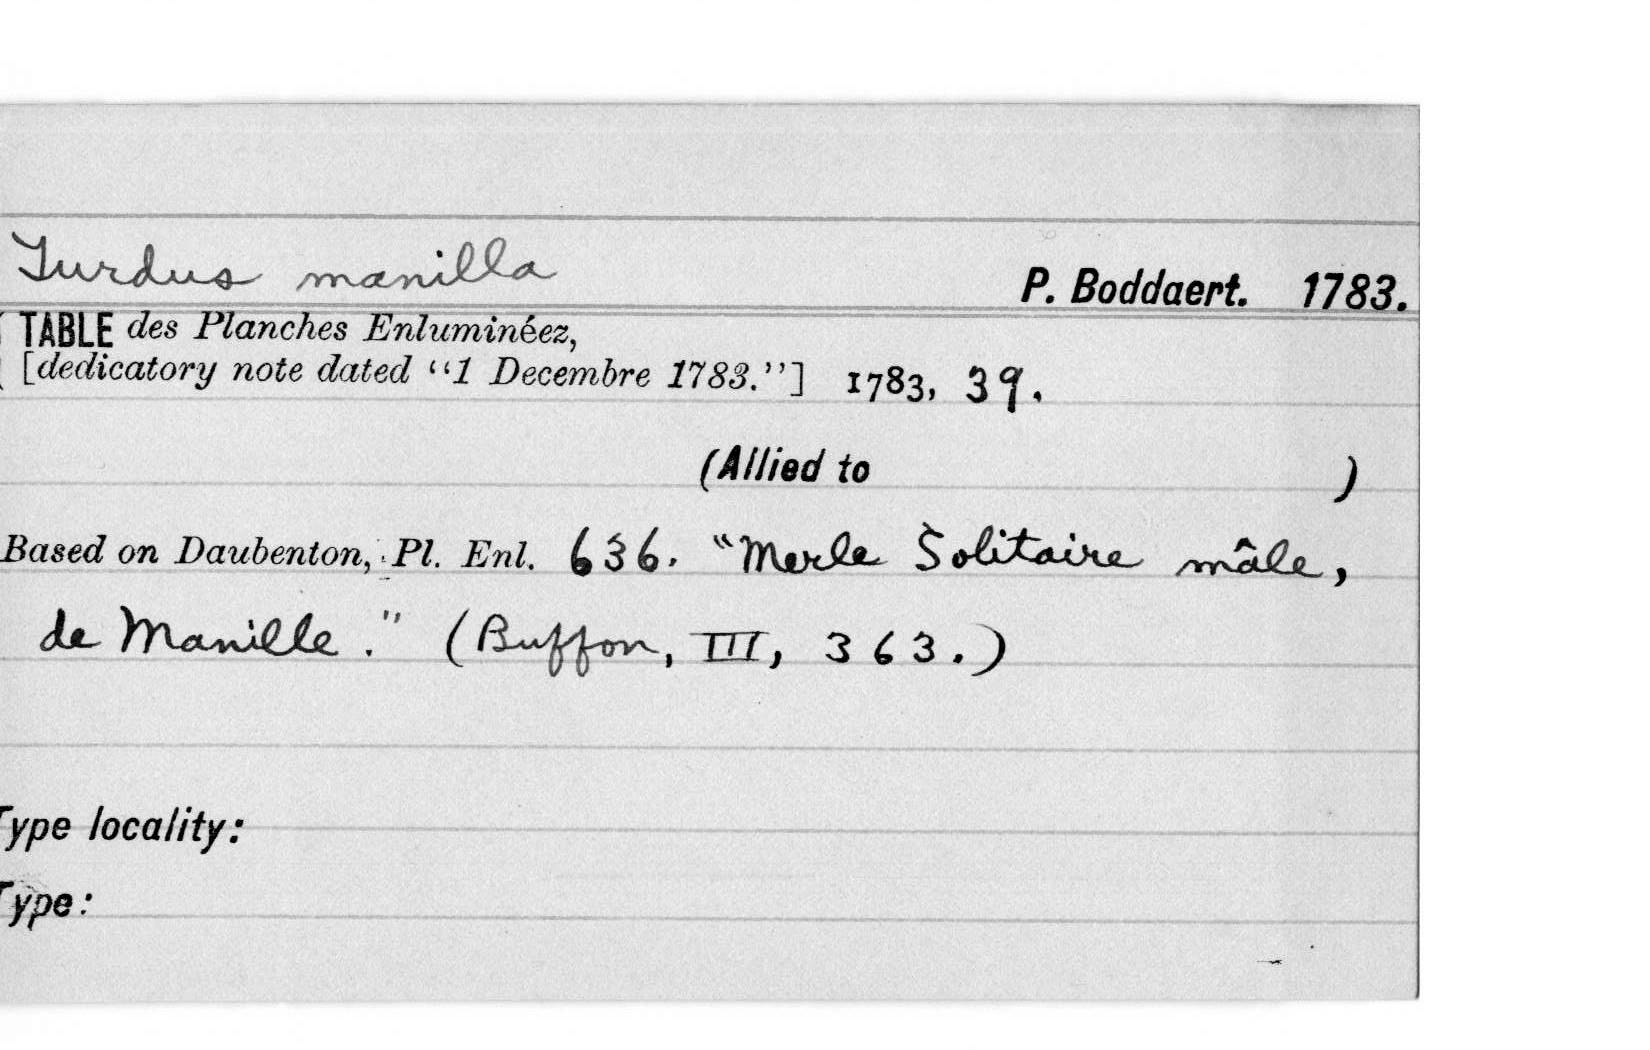 Turdus manilla P. Boddaert. 1783.
TABLE des Planches Enluminéez,
[dedicatory note dated "1 Decembre 1783."] 1783, 39.
(Allied to )
Based on Daubenton, Pl. Enl. 636. "Merle Solitaire mâle,
de Manille." (Buffon, III, 363.)
Type locality:
Type: